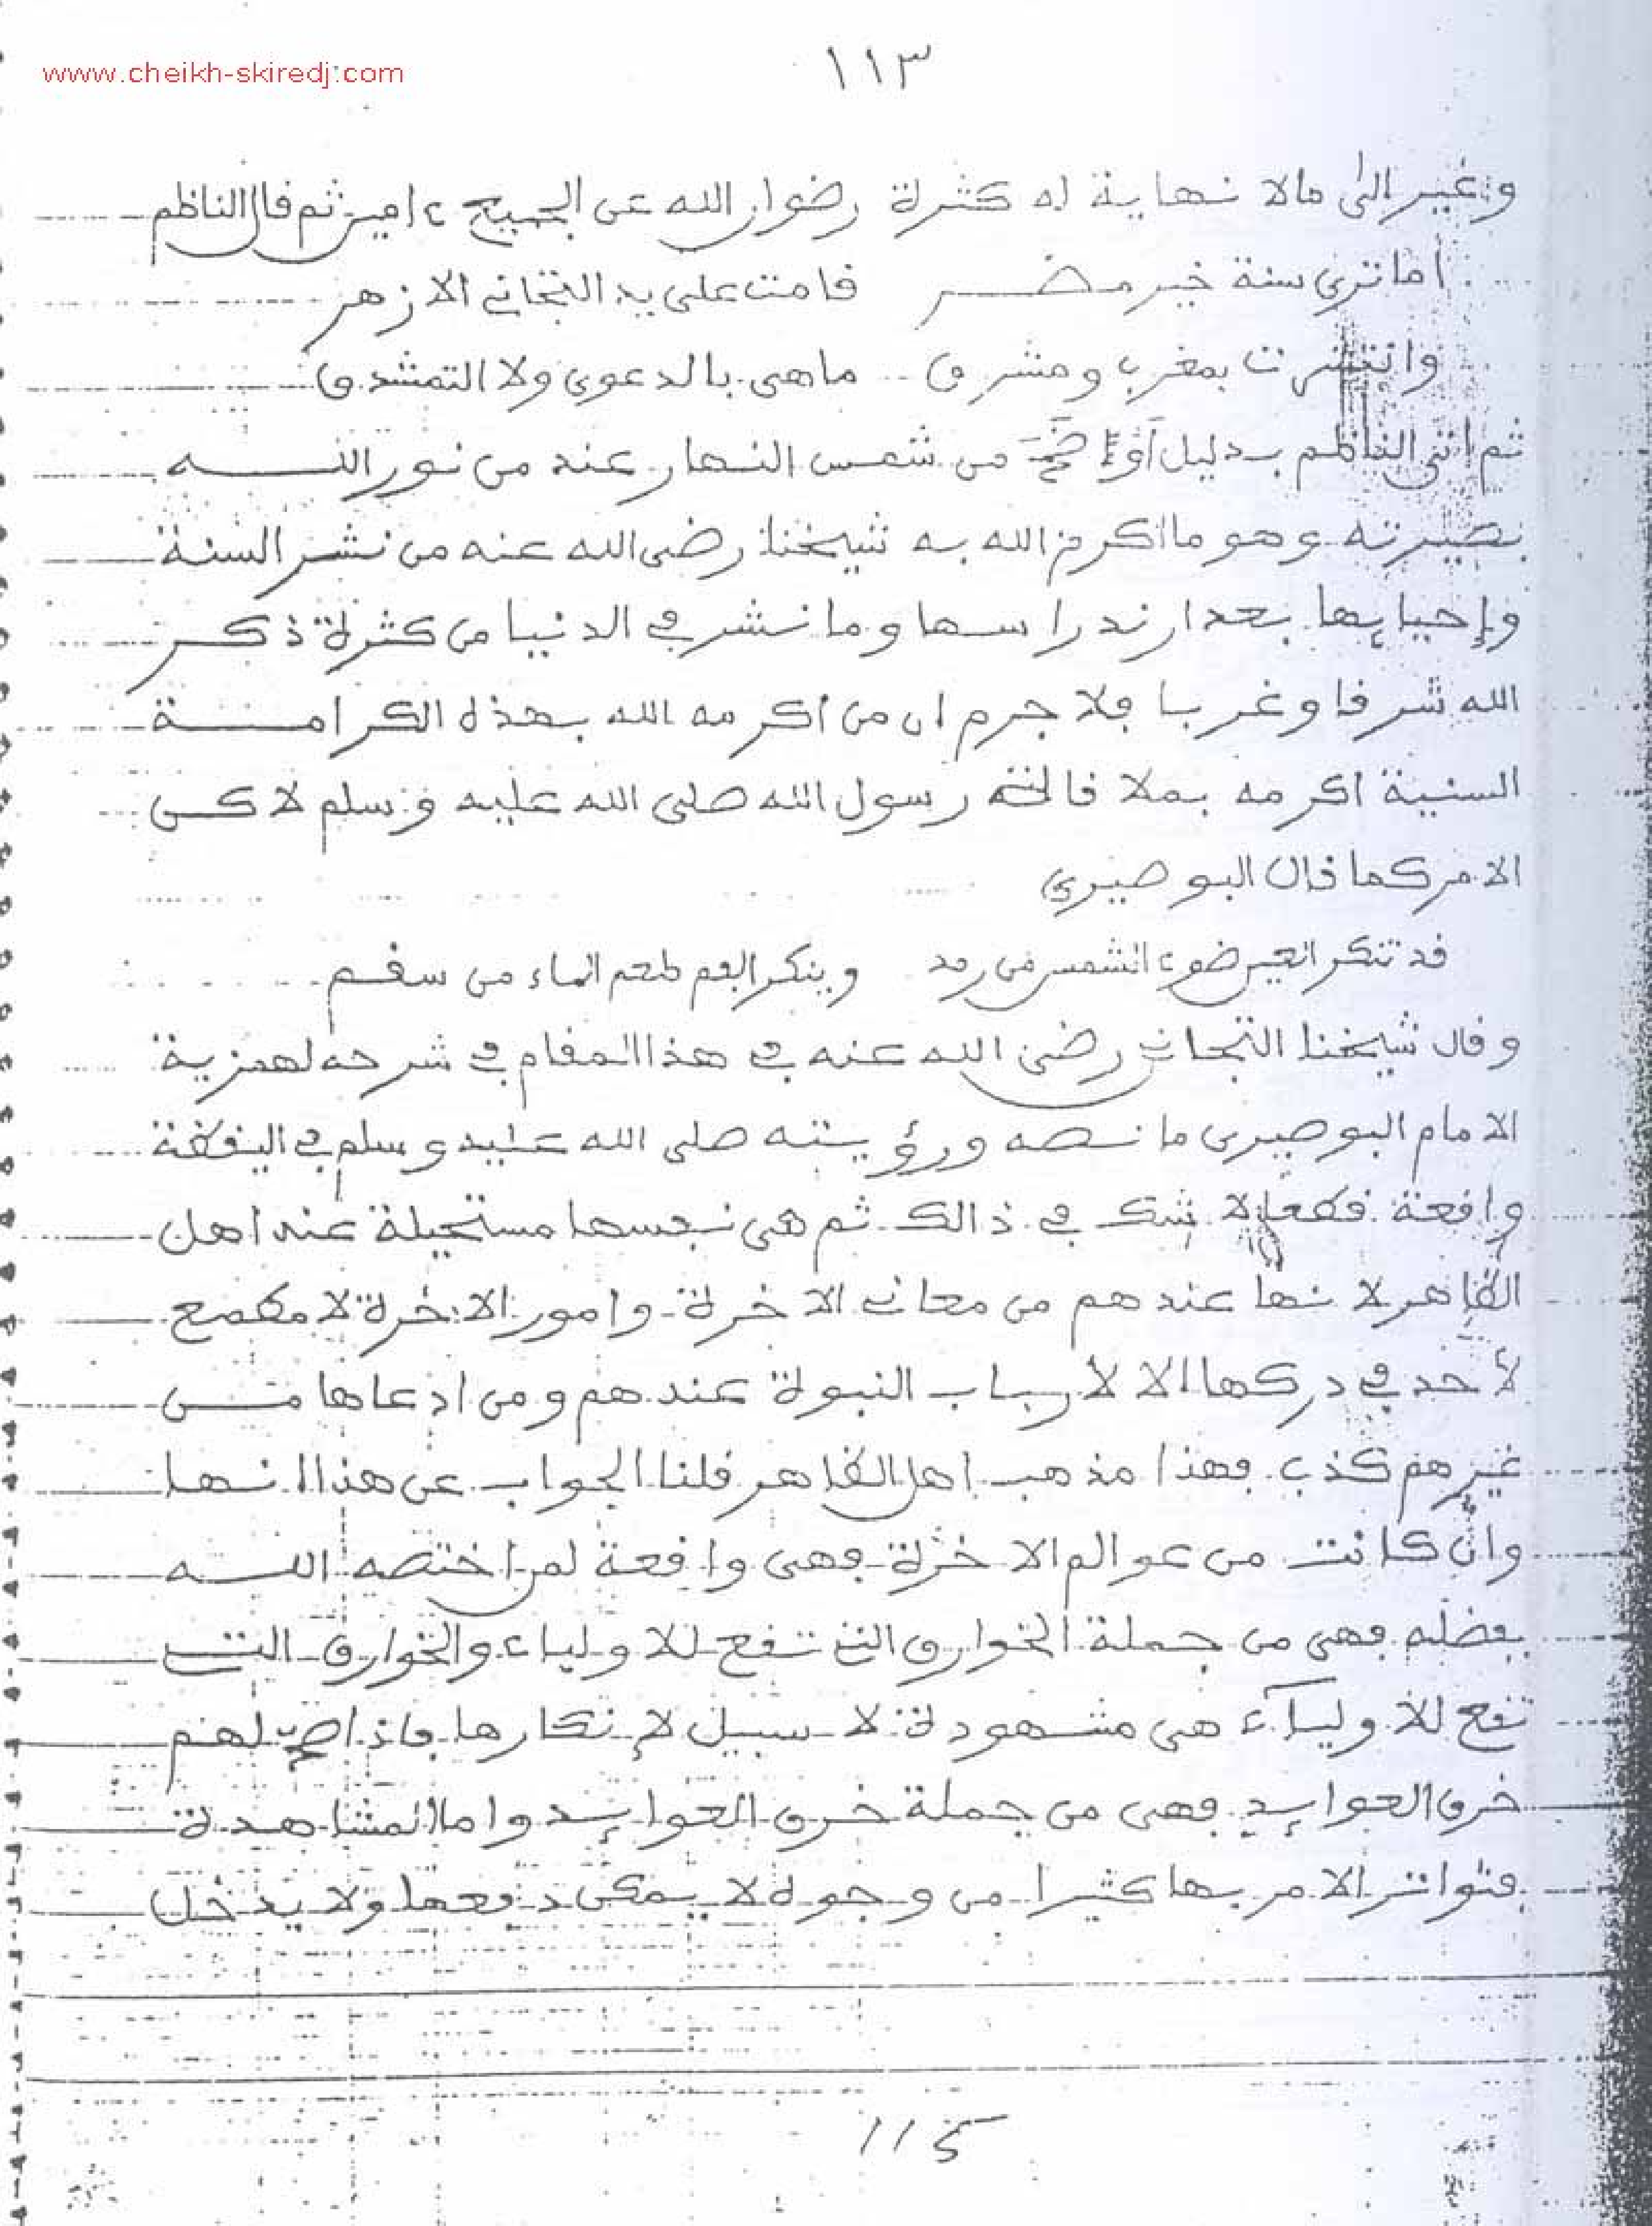 www.cheikh-skiredj.com
١١٣
وغير الى مالا نهاية له كثرة رضوان الله عن الجميع ءامين ثم قال الناظم
أما ترى سنة خير مضر قامت على يد التجاني الازهر
وانتشرت بمغرب ومشرق ماهي بالدعوى ولا التمشدق
ثم اتى الناظم بدليل أوضح من شمس النهار عند من نور الله
بصيرته وهو ما اكرم الله به شيخنا رضي الله عنه من نشر السنة
وإحيايها بعد اندراسها وما نشر في الدنيا من كثرة ذكر
الله شرقا وغربا فلا جرم ان من اكرمه الله بهذه الكرامة
السنية اكرمه بملاقاته رسول الله صلى الله عليه وسلم لاكن
الامر كما قال البوصيري
قد تنكر العين ضوء الشمس من رمد وينكر الفم طعم الماء من سقم
وقال شيخنا التجاني رضي الله عنه في هذا المقام في شرحه لهمزية
الامام البوصيري ما نصه ورؤيته صلى الله عليه وسلم في اليقظة
واقعة قطعا لا شك في ذالك ثم هي نفسها مستحيلة عند اهل
الظاهر لانها عندهم من معاني الاخرة وامور الاخرة لا مطمع
لأحد في دركها الا لارباب النبوة عندهم ومن ادعاها من
غيرهم كذب فهذا مذهب اهل الظاهر قلنا الجواب عن هذا انها
وان كانت من عوالم الاخرة فهي واقعة لمن اختصه الله
بفضله فهي من جملة الخوارق التي تقع للاولياء والخوارق التي
تقع للأوليآء هي مشهودة لا سبيل لإنكارها فاذا صح لهم
خرق العوايد فهي من جملة خرق العوايد واما المشاهدة
فتواتر الامر بها كثيرا من وجوه لا يمكن دفعها ولا يدخل